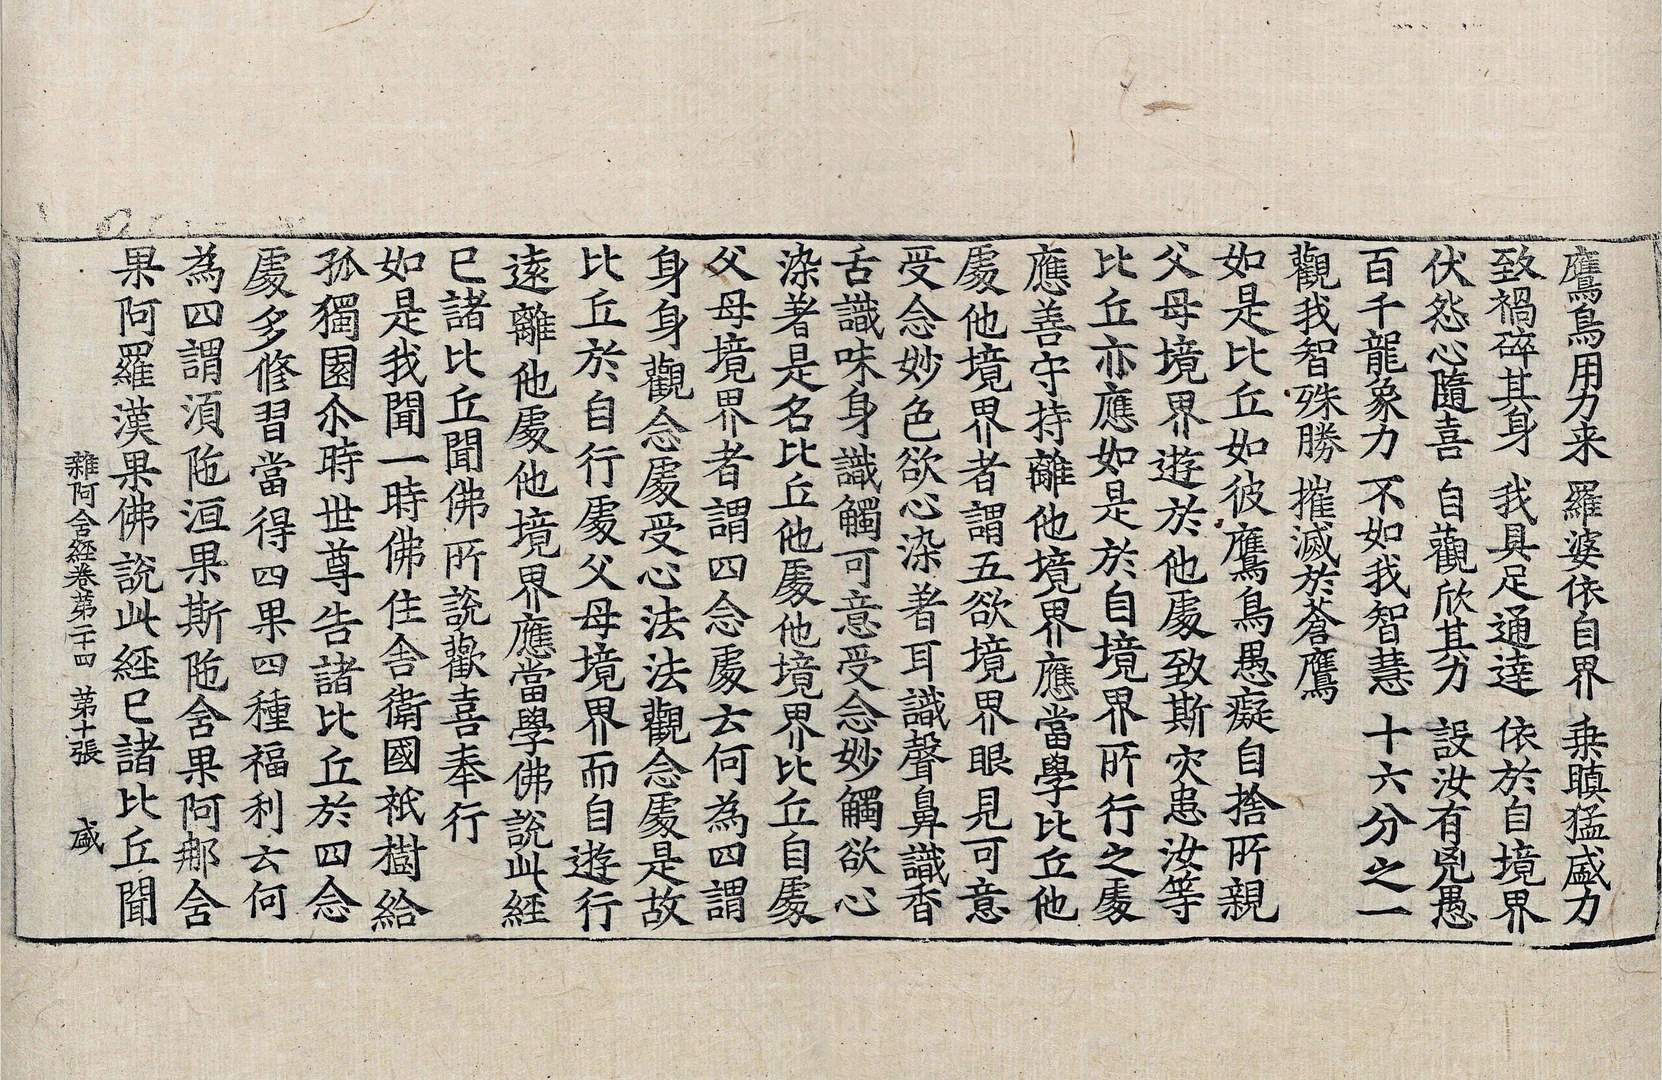 鷹鳥用力来　羅婆依自界　乗瞋猛盛力
致禍碎其身　我具足通達　依於自境界
伏怨心隨喜　自觀欣其力　設汝有兇愚
百千龍象力　不如我智慧　十六分之一
觀我智殊勝　摧滅於蒼鷹
如是比丘如彼鷹鳥愚癡自捨所親
父母境界遊於他處致斯灾患汝等
比丘亦應如是於自境界所行之處
應善守持離他境界應當學比丘他
處他境界者謂五欲境界眼見可意
受念妙色欲心染著耳識聲鼻識香
舌識味身識觸可意受念妙觸欲心
染著是名比丘他處他境界比丘自處
父母境界者謂四念處云何為四謂
身身觀念處受心法法觀念處是故
比丘於自行處父母境界而自遊行
遠離他處他境界應當學佛說此經
已諸比丘聞佛所說歡喜奉行
如是我聞一時佛住舍衛國祇樹給
孤獨園尒時世尊告諸比丘於四念
處多修習當得四果四種福利云何
為四謂湏陁洹果斯陁含果阿那含
果阿羅漢果佛說此經已諸比丘聞
雜阿含經卷第二十四　第十張　盛